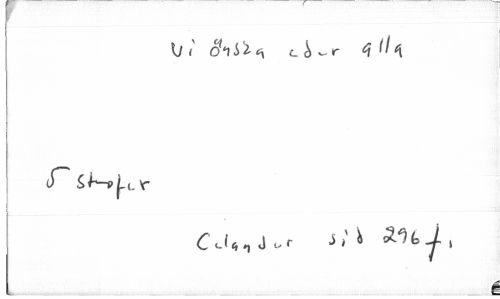 Vi önska eder alla
5 strofer
Celander sid 296 f.